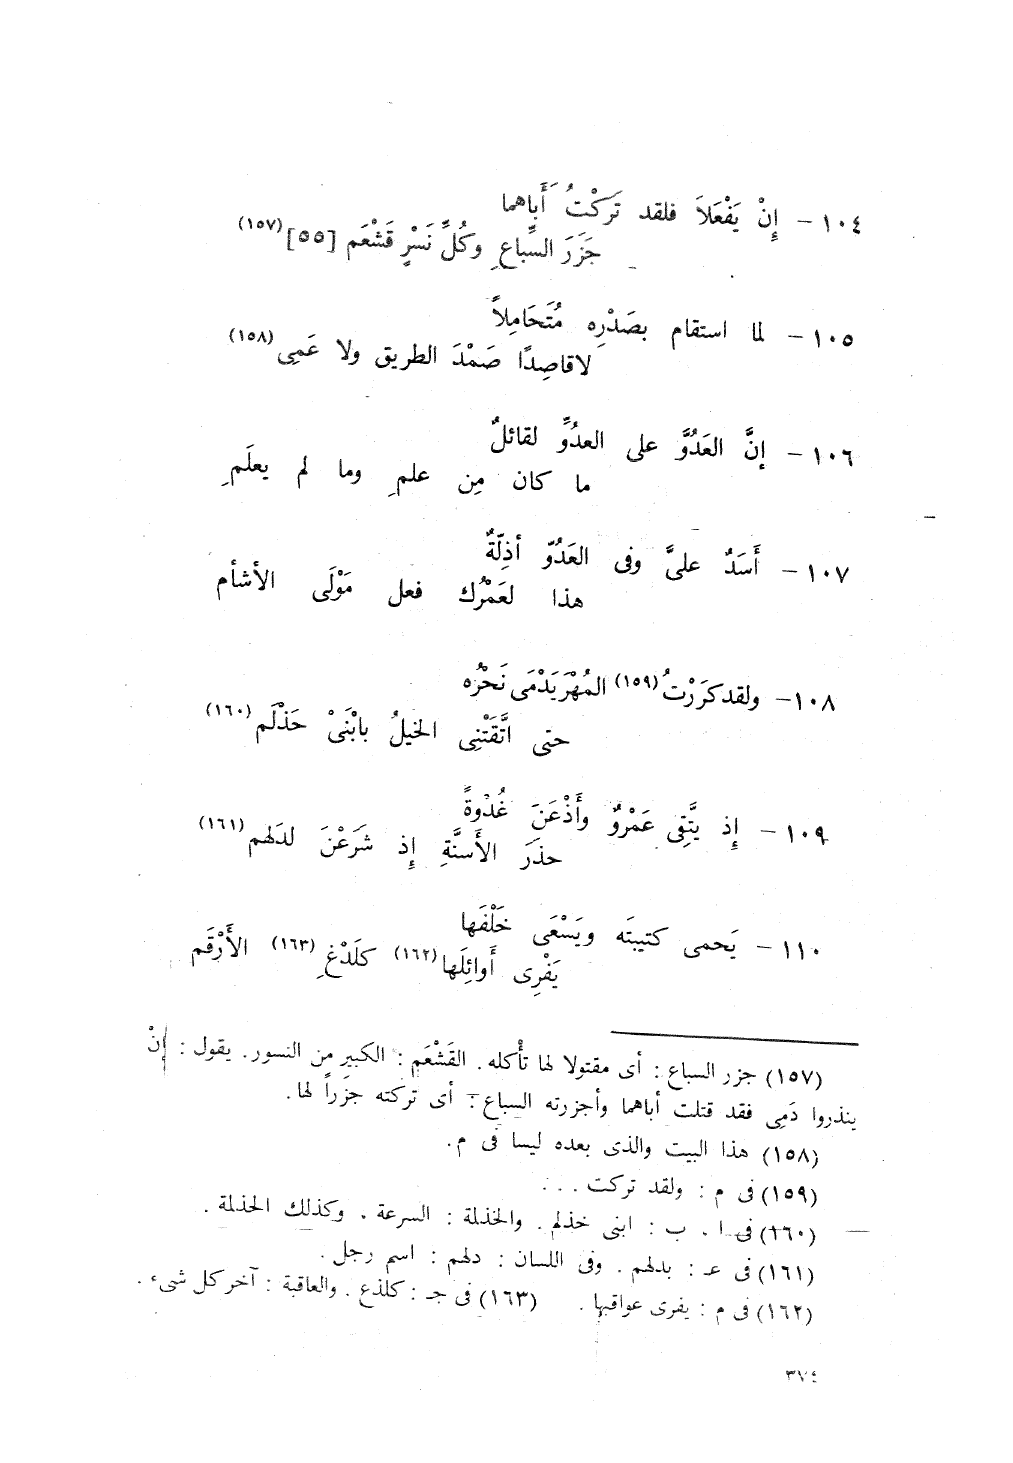 ١٠٤ – إِنْ يَفْعَلاَ فلقد تَرَكْتُ أَباهما
جَزَرَ السِّباعِ وكُلِّ نَسْرٍ قَشْعَم [٥٥] (١٥٧)
١٠٥ – لما استقام بصَدْرِه مُتَحَامِلاً
لاقاصِدًا صَمْدَ الطريق ولا عَمِى (١٥٨)
١٠٦ – إنَّ العَدُوَّ على العدُوِّ لقائلٌ
ما كان مِن علمِ وما لم يعلَمِ
١٠٧ – أَسَدٌ علىَّ وفى العَدُوّ أذِلّةٌ
هذا لعَمْرُك فعل مَوْلَى الأشأم
١٠٨ – ولقدكَرَرْتُ (١٥٩) المُهْرَيَدْمَى نَحْرُه
حتى اتَّقَتْنِى الخيلُ بابْنَىْ حَذْلَم (١٦٠)
١٠٩ – إِذ يتَّقِى عَمْروٌ وأَذْعَنَ غُدْوةً
حذَرَ الأَسنَّةِ إِذ شَرَعْنَ لدَلهم (١٦١)
١١٠ – يَحمى كتيبتَه ويَسْعَى خَلْفَها
يَفْرِى أَوائِلَها (١٦٢) كلَدْغِ (١٦٣) الأَرْقَم
(١٥٧) جزر السباع : أى مقتولا لها تأْكله. القَشْعَم : الكبير من النسور. يقول : إنْ
ينذروا دَمِى فقد قتلت أباهما وأجزرته السباع : أى تركته جزَراً لها.
(١٥٨) هذا البيت والذى بعده ليسا فى م.
(١٥٩) فى م : ولقد تركت . . .
(١٦٠) فى ا . ب : ابنى خذلم . والخذلة : السرعة . وكذلك الحذلة .
(١٦١) فى عـ : بدلهم . وفى اللسان : دلهم : اسم رجل .
(١٦٢) فى م : يفرى عواقبها . (١٦٣) فى جـ : كلذع . والعاقبة : آخر كل شىء .
٣٧٤